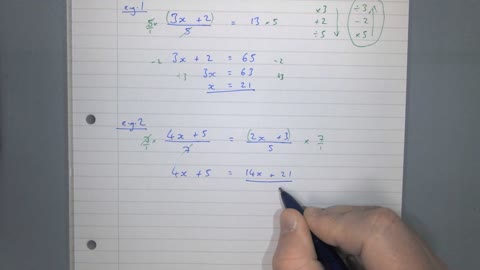 e.g.1
5/1 × (3x + 2)/5 = 13 × 5
×3 ÷3
+2 -2
÷5 ×5
-2 3x + 2 = 65 -2
÷3 3x = 63 ÷3
x = 21
e.g.2
7/1 × 4x + 5/7 = (2x + 3)/5 × 7/1
4x + 5 = 14x + 21